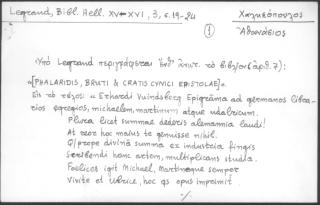 Legrand, Bibl. Hell. XV-XVI, 3, σ. 19-24
Χαλκεόπουλος
Ἀθανάσιος
1
Ὑπὸ Legrand περιγράφεται τὸ βιβλίον (ἀρθ. 7):
«[PHALARIDIS, BRUTI & CRATIS CYNICI EPISTOLAE]»
Εἰς τὸ τέλος: «Erhardi Vuindsberg Epigrāma ad germanos libra-
rios egregios, michaelem, martinum atque udalricum.
Plura licet summae dederis alemannia laudi!
At reor hoc maius te genuisse nihil.
Q/prope divinā summa ex industria fingis
Scribendi hanc artem, multiplicans studia.
Foelices igit Michael, Martineque semper
Vivite et Ulrice, hoc qs opus imprimit